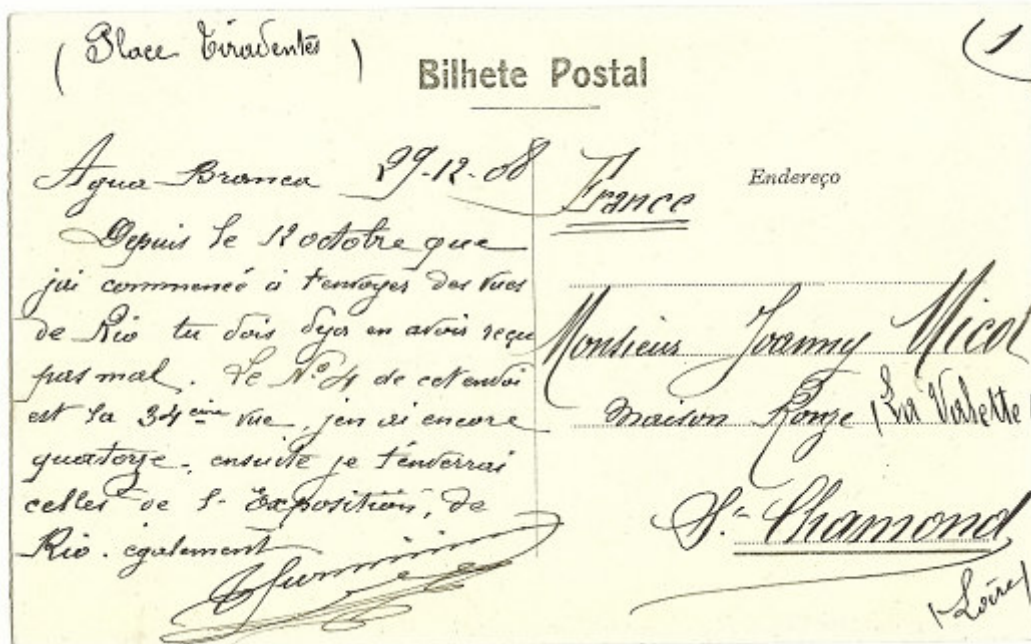 (Place Tiradentes)
(1
Bilhete Postal
Agua Branca 29-12-08
Depuis le 12 octobre que
j'ai commencé à t'envoyer des vues
de Rio tu dois deja en avoir reçu
pas mal. Le Nº 4 de cet envoi
est la 34eme vue, j'en ai encore
quatorze, ensuite je t'enverrai
celles de l'Exposition, de
Rio. egalement
Endereço
France
Monsieur Joanny Nicol
maison Ronze (La Valette
St. Chamond
(Loire)